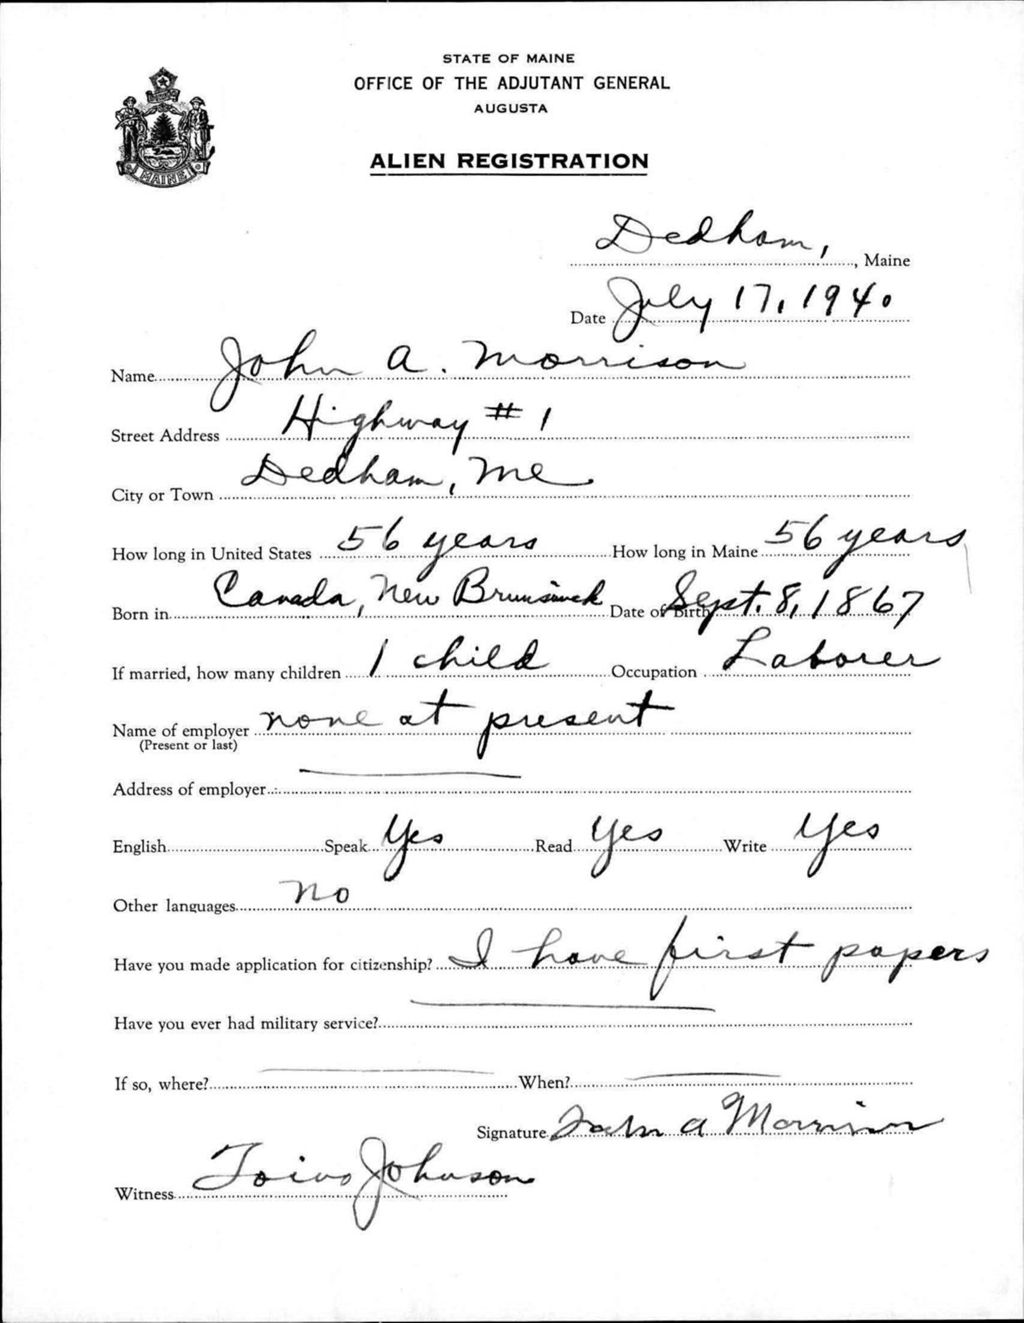 STATE OF MAINE
OFFICE OF THE ADJUTANT GENERAL
AUGUSTA
ALIEN REGISTRATION
MAINE
Dedham, , Maine
Date July 17, 1940
Name John A. Morrison
Street Address Highway # 1
City or Town Dedham, Me
How long in United States 56 years How long in Maine 56 years
Born in Canada, New Brunswick Date of Birth Sept. 8, 1867
If married, how many children 1 child Occupation Laborer
Name of employer none at present
(Present or last)
Address of employer
English Speak Yes Read Yes Write Yes
Other languages No
Have you made application for citizenship? I have first papers
Have you ever had military service?
If so, where? When?
Signature John A Morrison
Witness Toivo Johnson